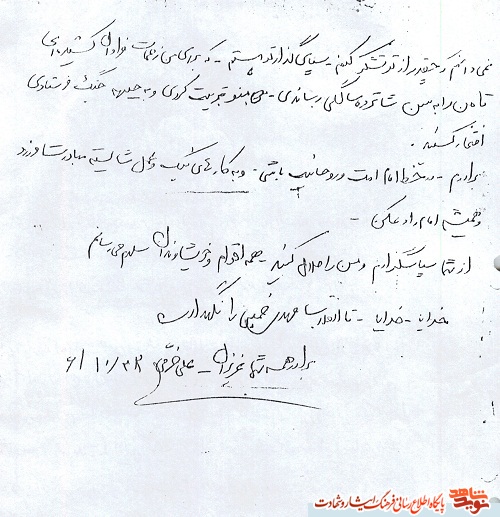 نمی‌دانم چقدر از تو تشکر کنم - سپاسگذار تو هستم - که برای من زحمات فراوان کشیده‌ای
تا من را به سن شانزده سالگی رساندی - مرا تربیت کردی و به جبهه جنگ فرستادی
افتخار کنید.
برادرم - در خط امام امت و روحانیت باشی - و به کارهای نیک و عمل شایسته مبادرت ورزد
و همیشه امام را دعا کن -
از شما سپاسگذارم و من را حلال کنید - همه اقوام و خویشاوندان سلام می‌رسانم
خدایا - خدایا - تا انقلاب مهدی خمینی را نگهداری
برادر همه شما عزیزان - علی
پایگاه اطلاع رسانی فرهنگ ایثار و شهادت
نوید شاهد